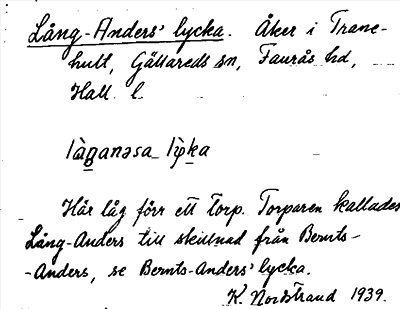 Lång-Anders' lycka. Åker i Trane-
hult, Gällareds sn, Faurås hd,
Hall. l.
Här låg förr ett torp. Torparen kallades
Lång-Anders till skillnad från Bernts-
-Anders, se Bernts-Anders' lycka.
K. Nordstrand 1939.